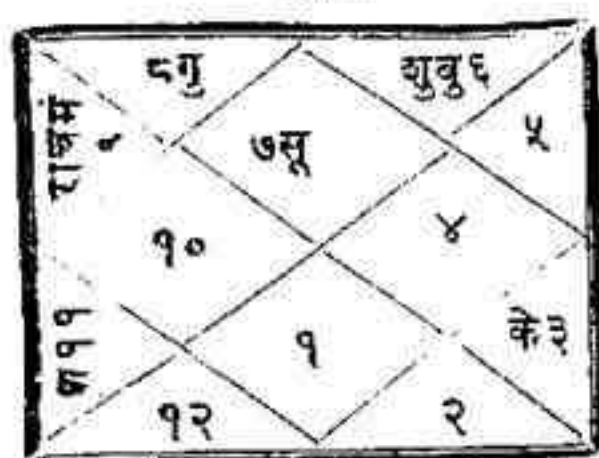 ८गु
शुबु६
राचंमं
९
७सू
५
१०
४
श११
१
के३
१२
२